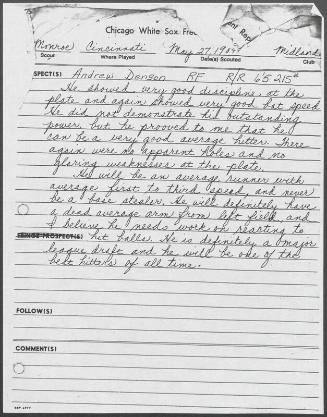 Chicago White Sox Free
ent Report
Monroe Cincinnati May 27, 1984 Midland
Scout Where Played Date(s) Scouted Club
SPECT(S) Andrew Denson RF R/R 6'5 215#
He showed very good discipline at the
plate and again showed very good bat speed.
He did not demonstrate his outstanding
power, but he prooved to me that he
can be a very good average hitter. There
again were no apparent holes and no
glaring weaknesses at the plate.
He will be an average runner with
average first to third speed, and never
be a base stealer. He will definitely have
a dead average arm from left field, and
I believe he needs work on reacting to
hit balls. He is definitely a major
league draft and he will be one of the
best hitters of all time.
FOLLOW(S)
COMMENT(S)